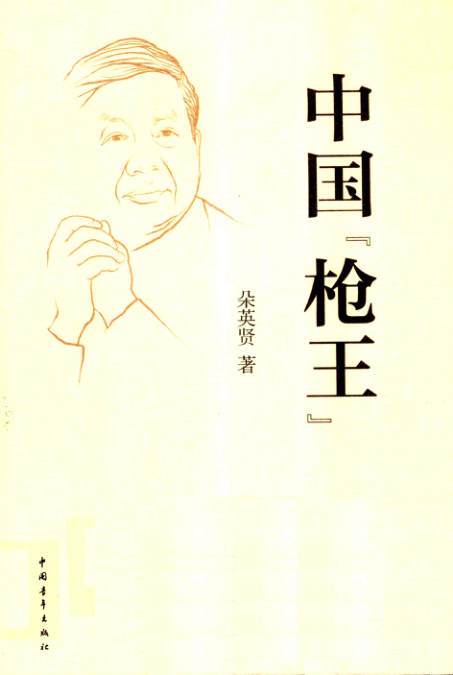 中国『枪王』
朵英贤 著
中国青年出版社